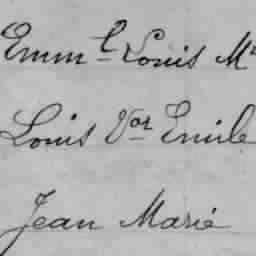 Emm.l Louis M
Louis Vor Emile
Jean Marie